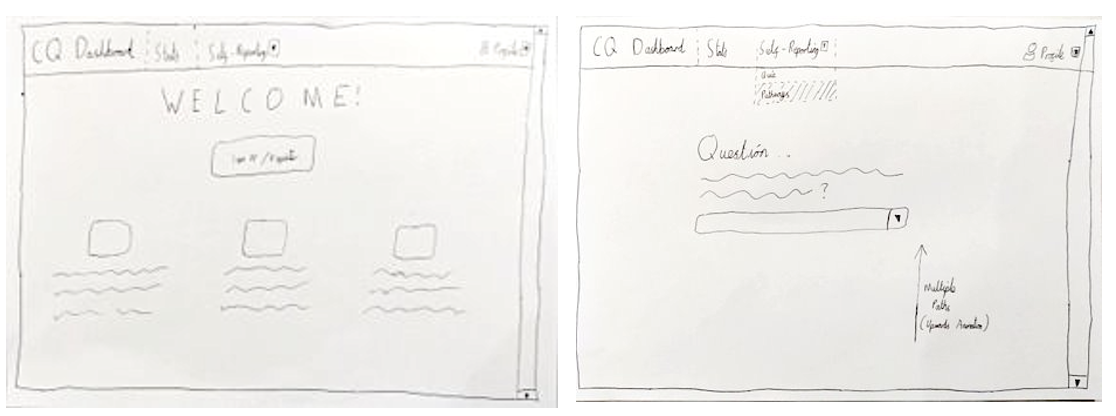 CQ Dashboard Stats Self-Reporting Profile
WELCOME!
CQ Dashboard Stats Self-Reporting Profile
Quiz
Pathways
Question...
?
Multiple
Paths
(Upwards Animation)